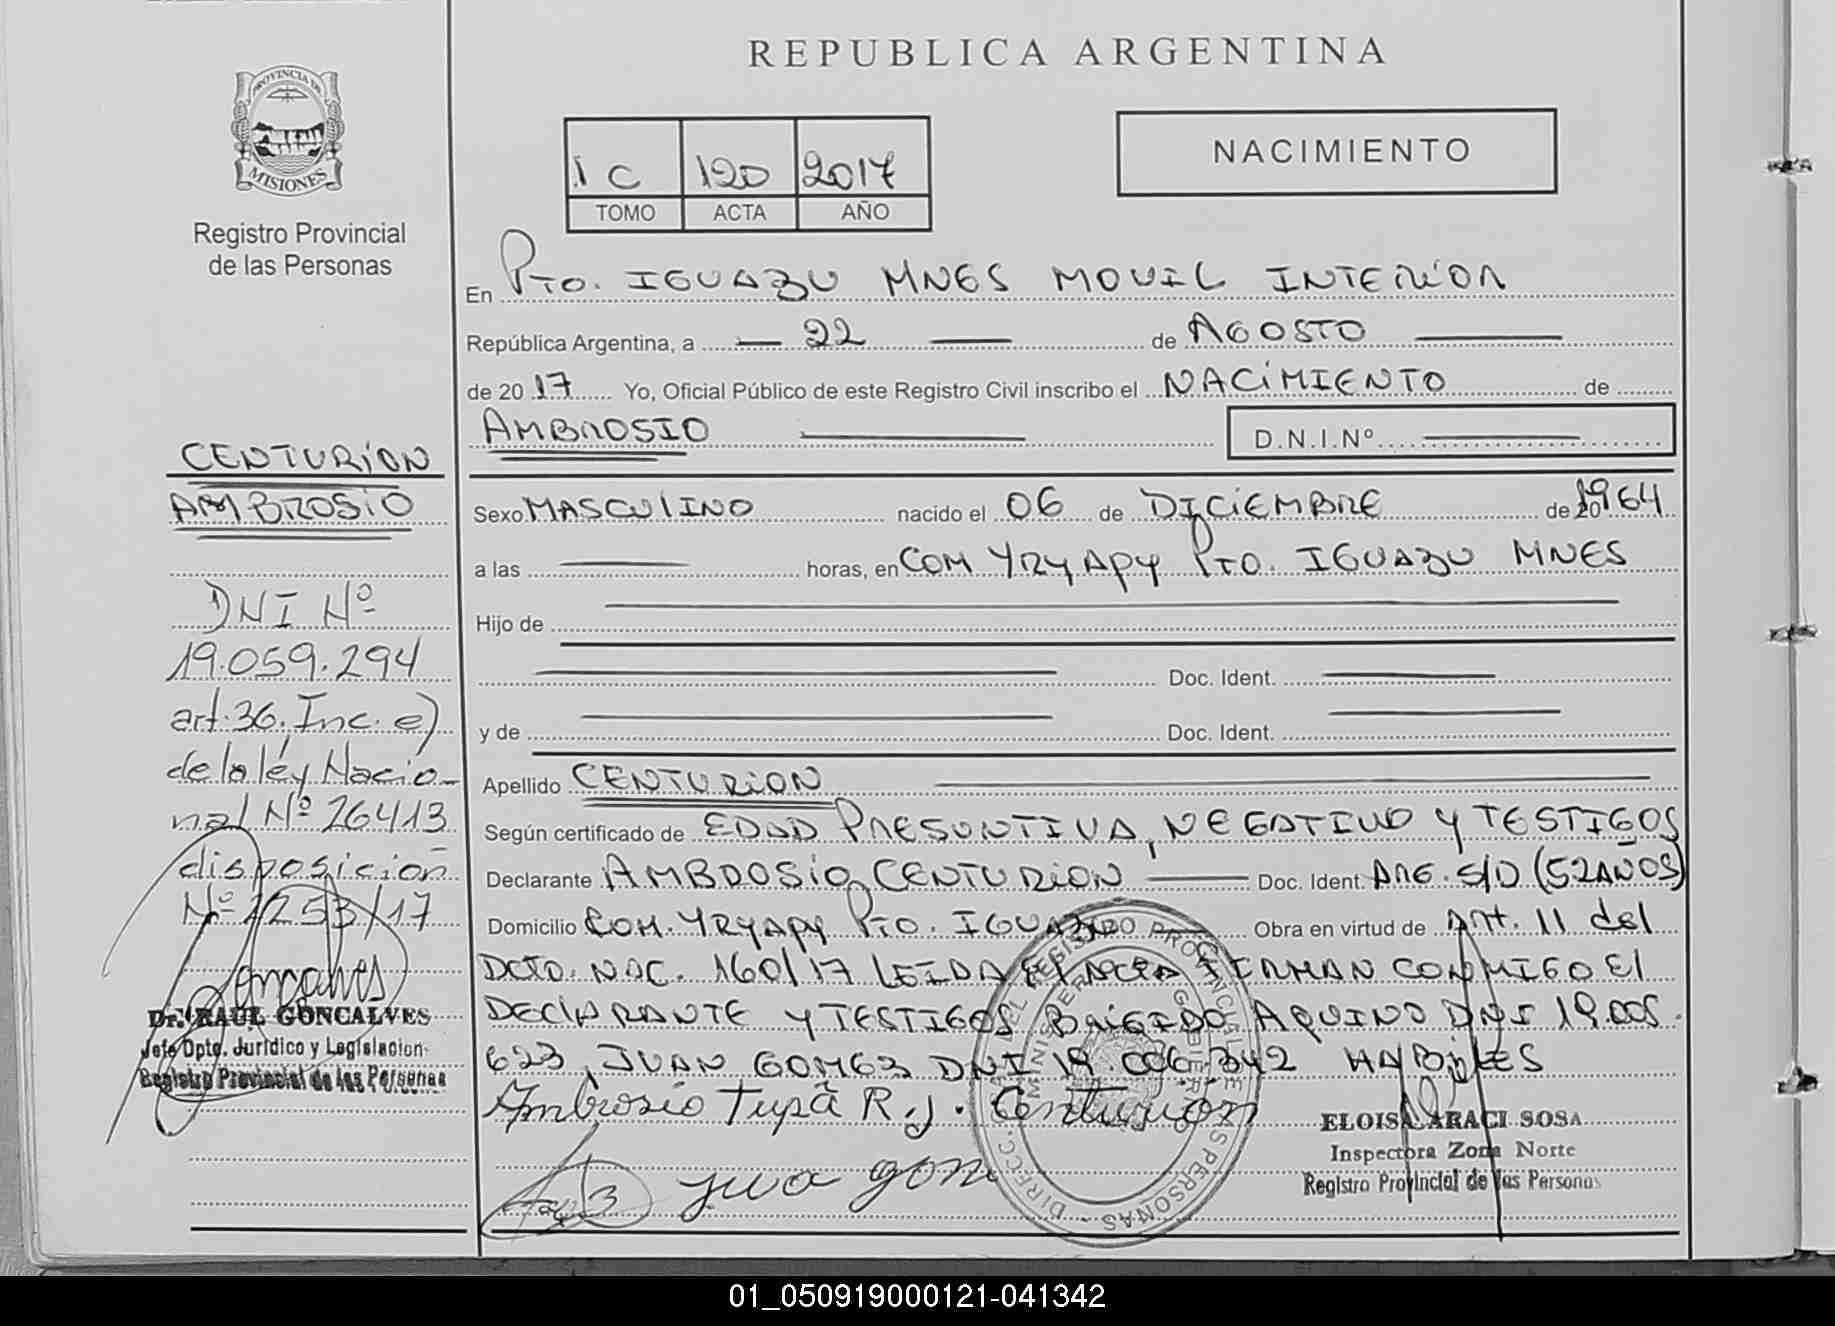 REPUBLICA ARGENTINA
PROVINCIA DE
MISIONES
Registro Provincial
de las Personas
1 C 120 2017
TOMO ACTA AÑO
NACIMIENTO
En Pto. IGUAZU MNES MOVIL INTERIOR
República Argentina, a 22 de AGOSTO
de 2017 Yo, Oficial Público de este Registro Civil inscribo el NACIMIENTO de
AMBROSIO D.N.I.Nº
CENTURION
AMBROSIO
DNI Nº
19.059.294
art. 36. Inc. e)
de la ley Nacio-
nal Nº 26413
disposición
Nº 2253/17
Goncalves
Dr. RAUL GONCALVES
Jefe Dpto. Jurídico y Legislacion
Registro Provincial de las Personas
Sexo MASCULINO nacido el 06 de DICIEMBRE de 1964
a las horas, en COM YRYAPY PTO. IGUAZU MNES
Hijo de
Doc. Ident.
y de Doc. Ident.
Apellido CENTURION
Según certificado de EDAD PRESUNTIVA, NEGATIVO Y TESTIGOS
Declarante AMBROSIO CENTURION Doc. Ident. ARG. S/D (52 AÑOS)
Domicilio COM. YRYAPY PTO. IGUAZU Obra en virtud de Art. 11 del
DCTO. NAC. 160/17 LEIDA El ACTA FIRMAN CONMIGO El
DECLARANTE Y TESTIGOS BRIGIDO AQUINO DNI 19.005.
623, JUAN GOMEZ DNI 19.006.342 HABILES
Ambrosio Tupã R.J. Centurión
ELOISA ARACI SOSA
Inspectora Zona Norte
Registro Provincial de las Personas
01_050919000121-041342